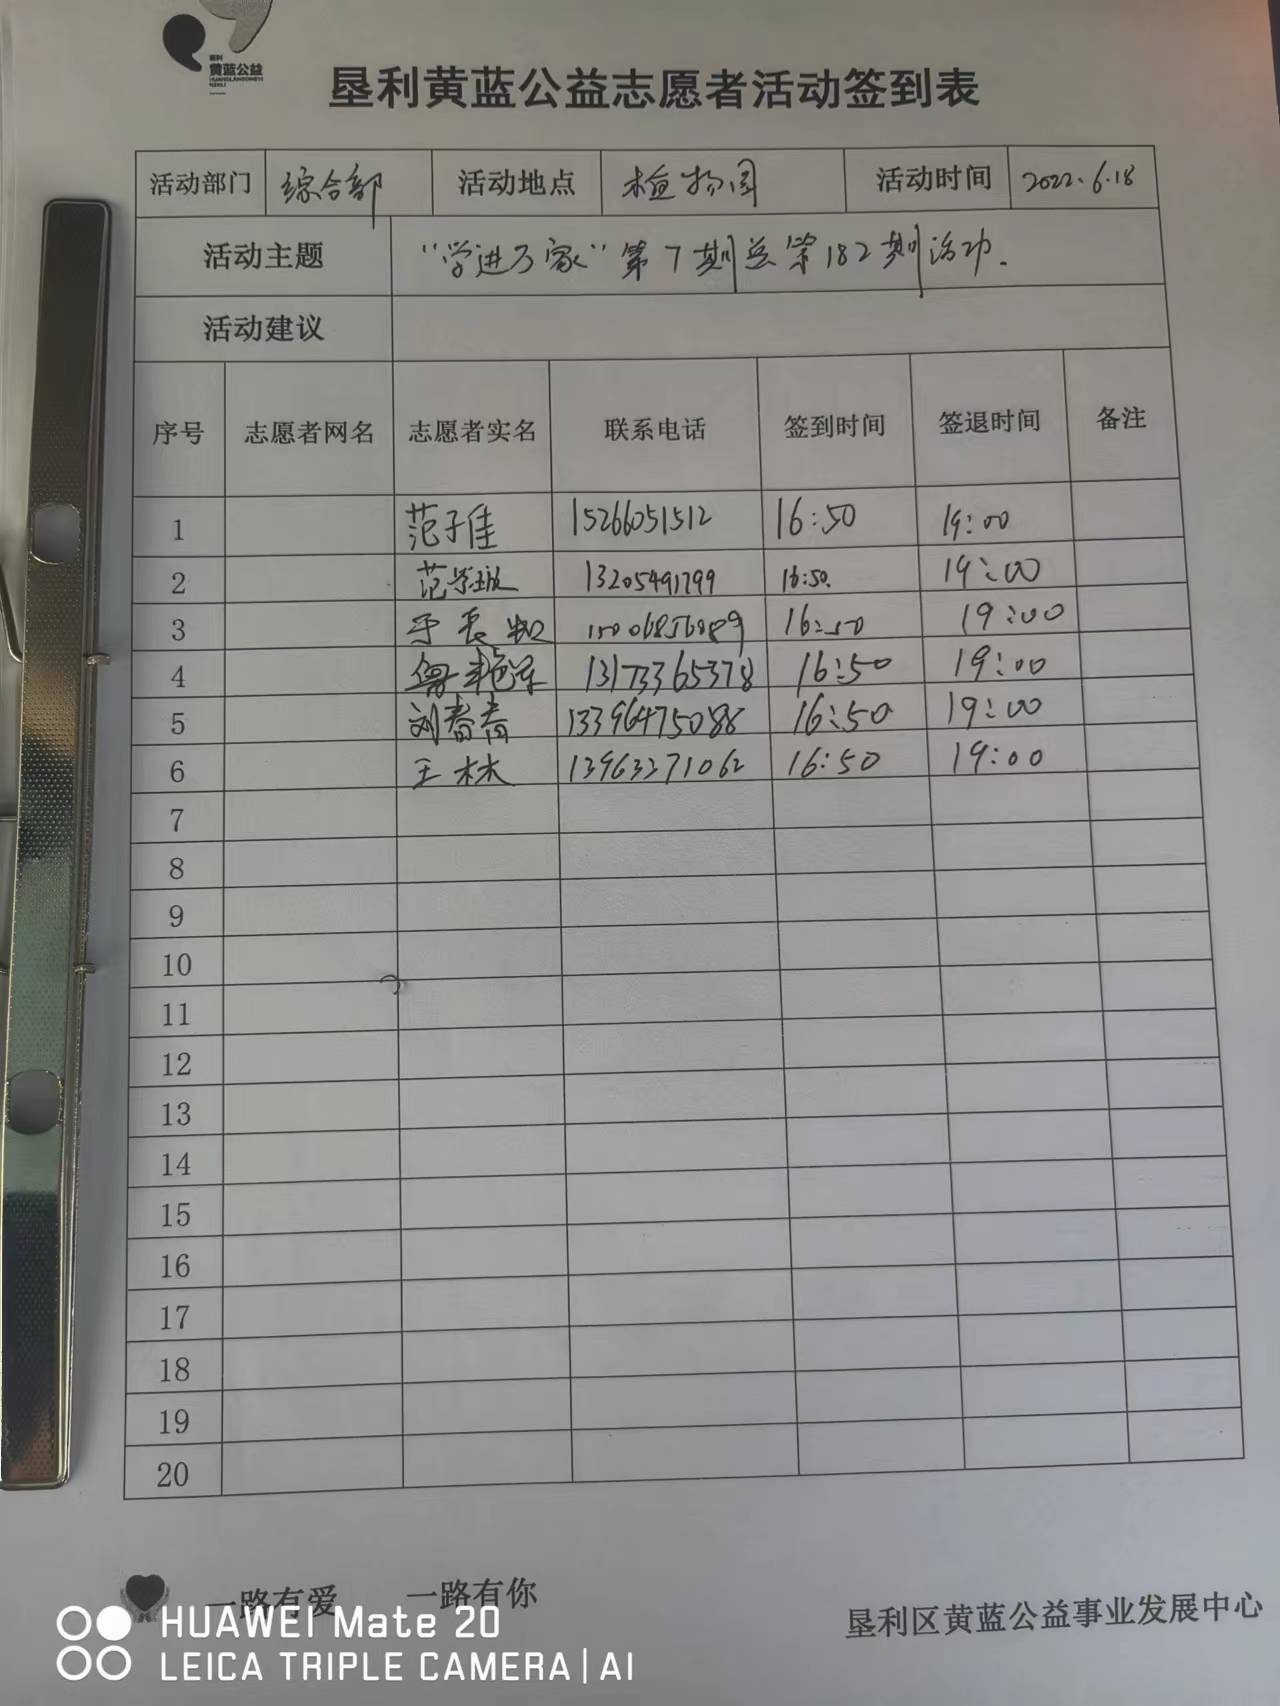 垦利
黄蓝公益
垦利黄蓝公益志愿者活动签到表
活动部门 综合部 活动地点 植物园 活动时间 2022.6.18
活动主题 “学进万家”第7期总第182期活动.
活动建议
序号 志愿者网名 志愿者实名 联系电话 签到时间 签退时间 备注
1 范子佳 15266051512 16:50 19:00
2 范 13205491799 16:50. 19:00
3 16:50 19:00
4 鲁艳军 13173365378 16:50 19:00
5 刘春香 13396475088 16:50 19:00
6 王林 13963271062 16:50 19:00
7
8
9
10
11
12
13
14
15
16
17
18
19
20
一路有爱 一路有你
垦利区黄蓝公益事业发展中心
HUAWEI Mate 20
LEICA TRIPLE CAMERA | AI